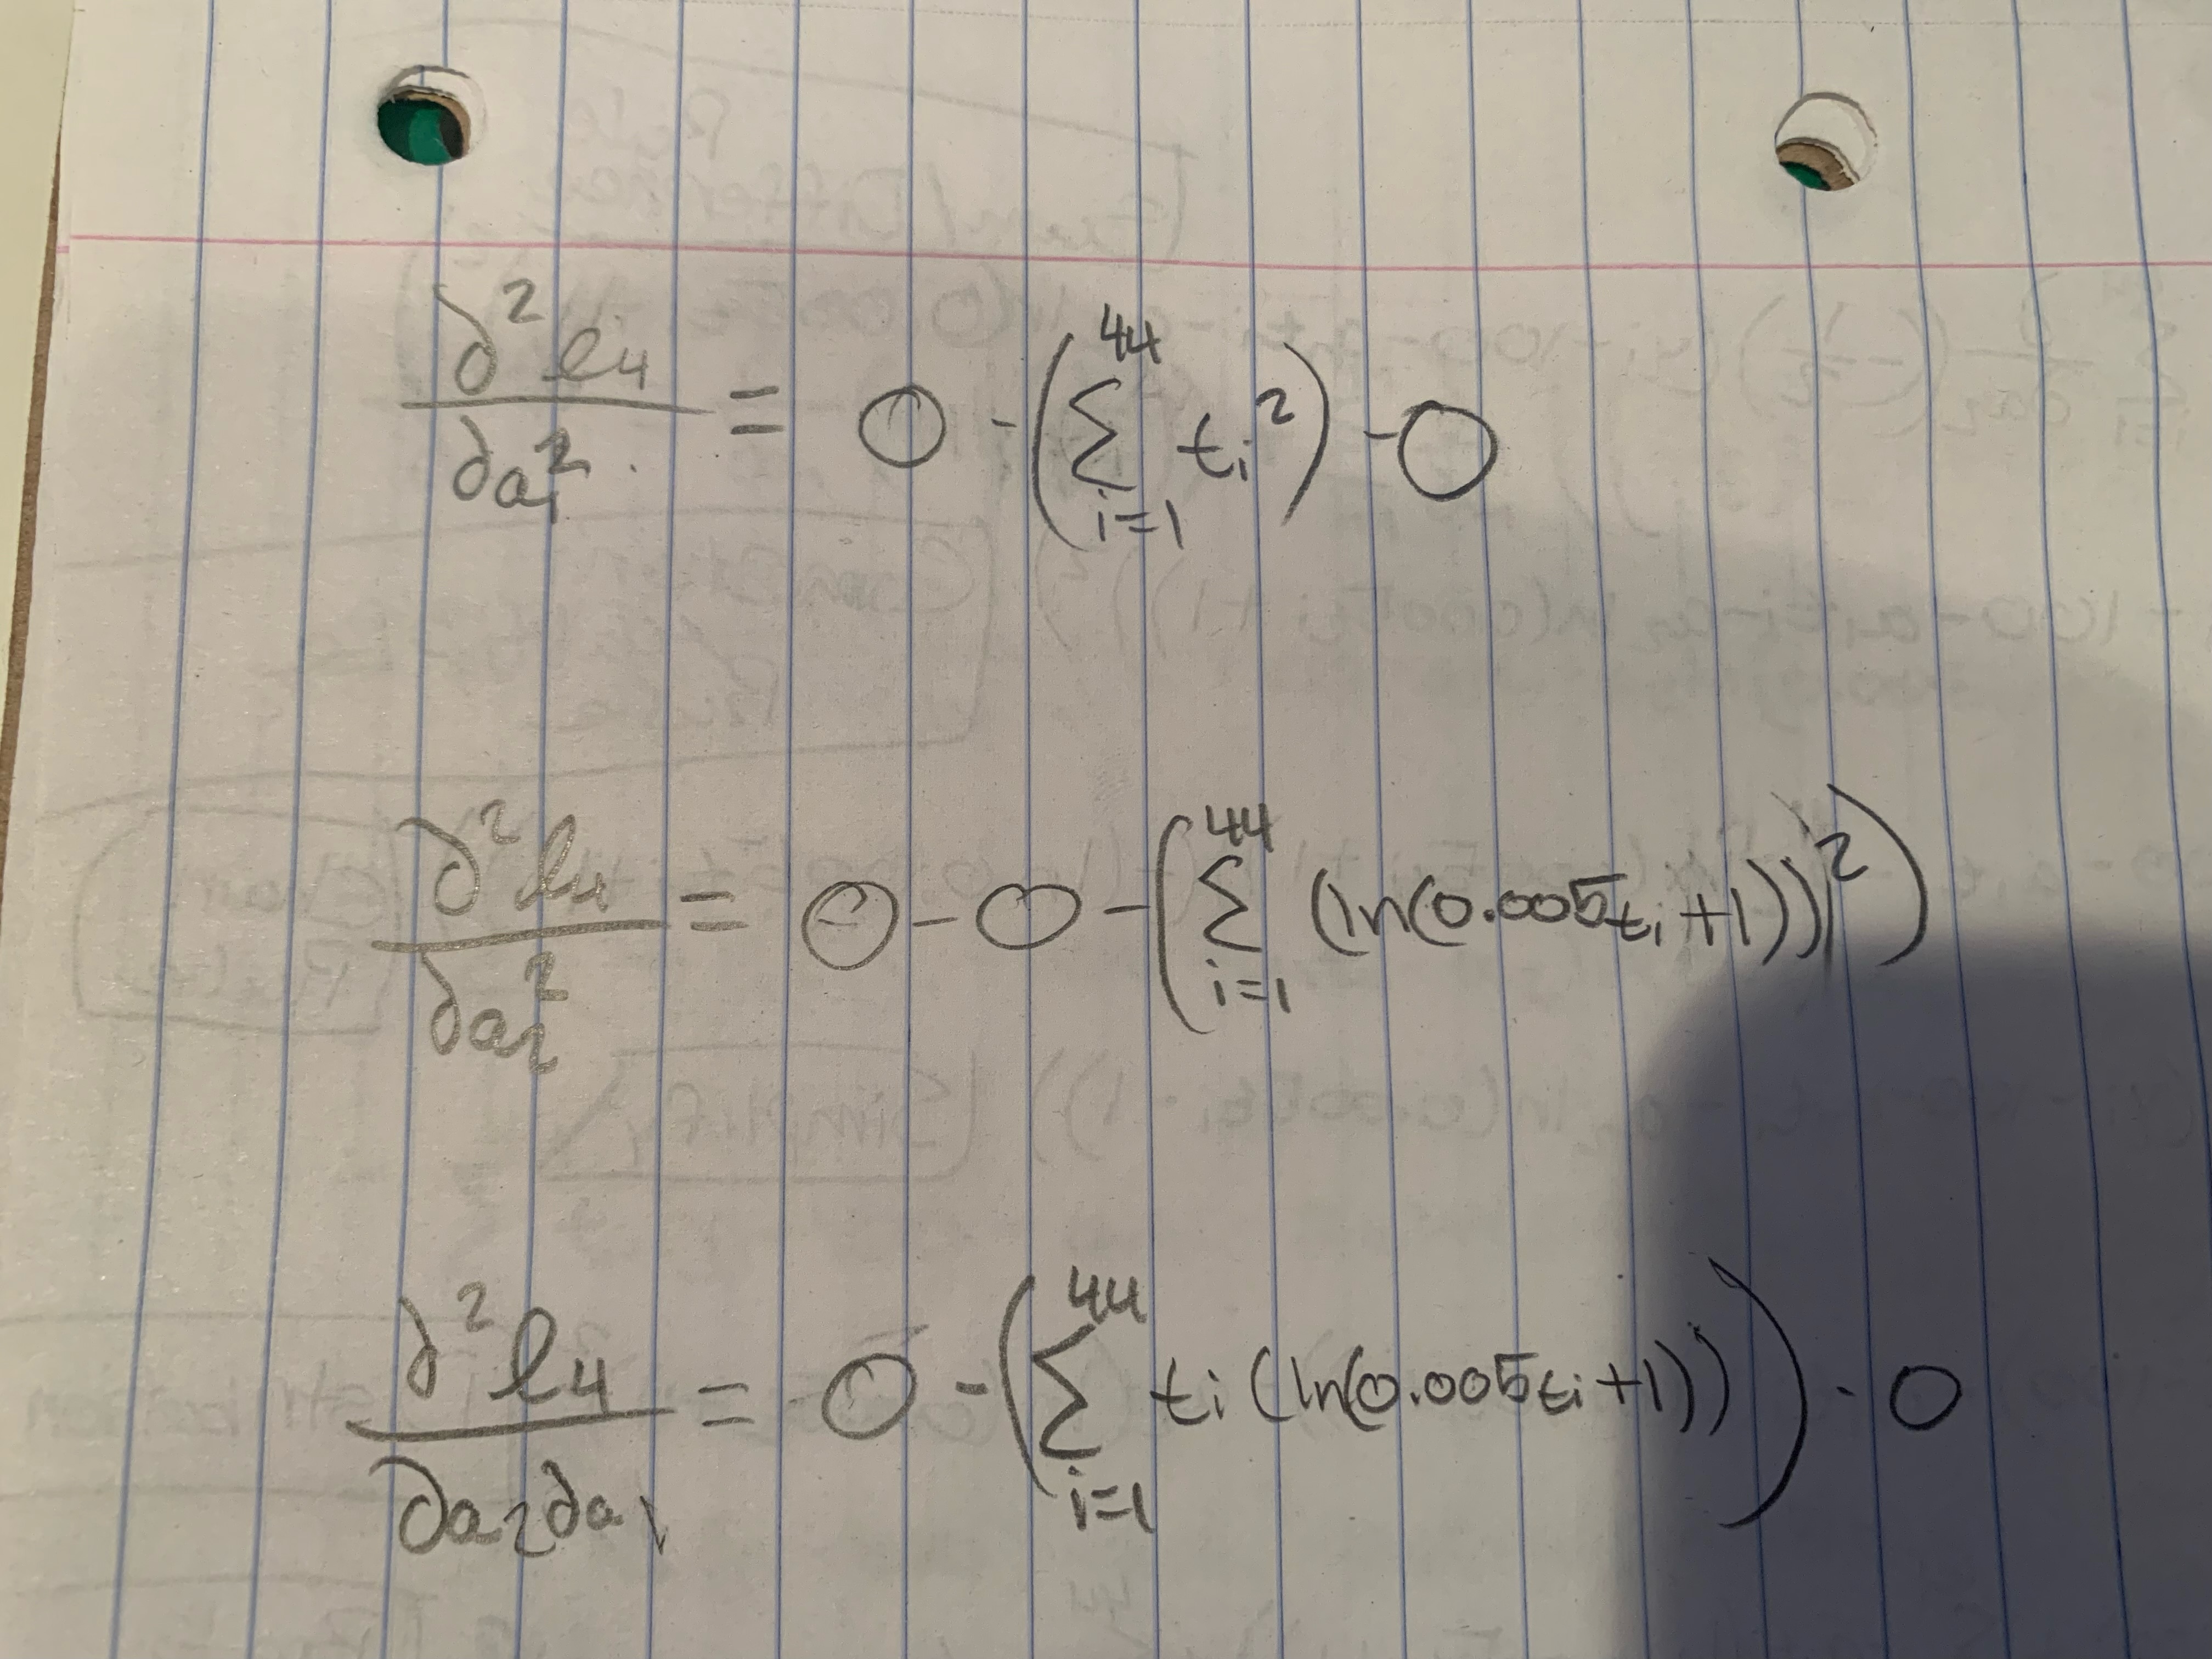 ∂²l₄/∂a₁² = 0 - (∑_{i=1}^{44} tᵢ²) - 0
∂²l₄/∂a₂² = 0 - 0 - (∑_{i=1}^{44} (ln(0.005tᵢ+1))²)
∂²l₄/∂a₂∂a₁ = 0 - (∑_{i=1}^{44} tᵢ(ln(0.005tᵢ+1))) - 0